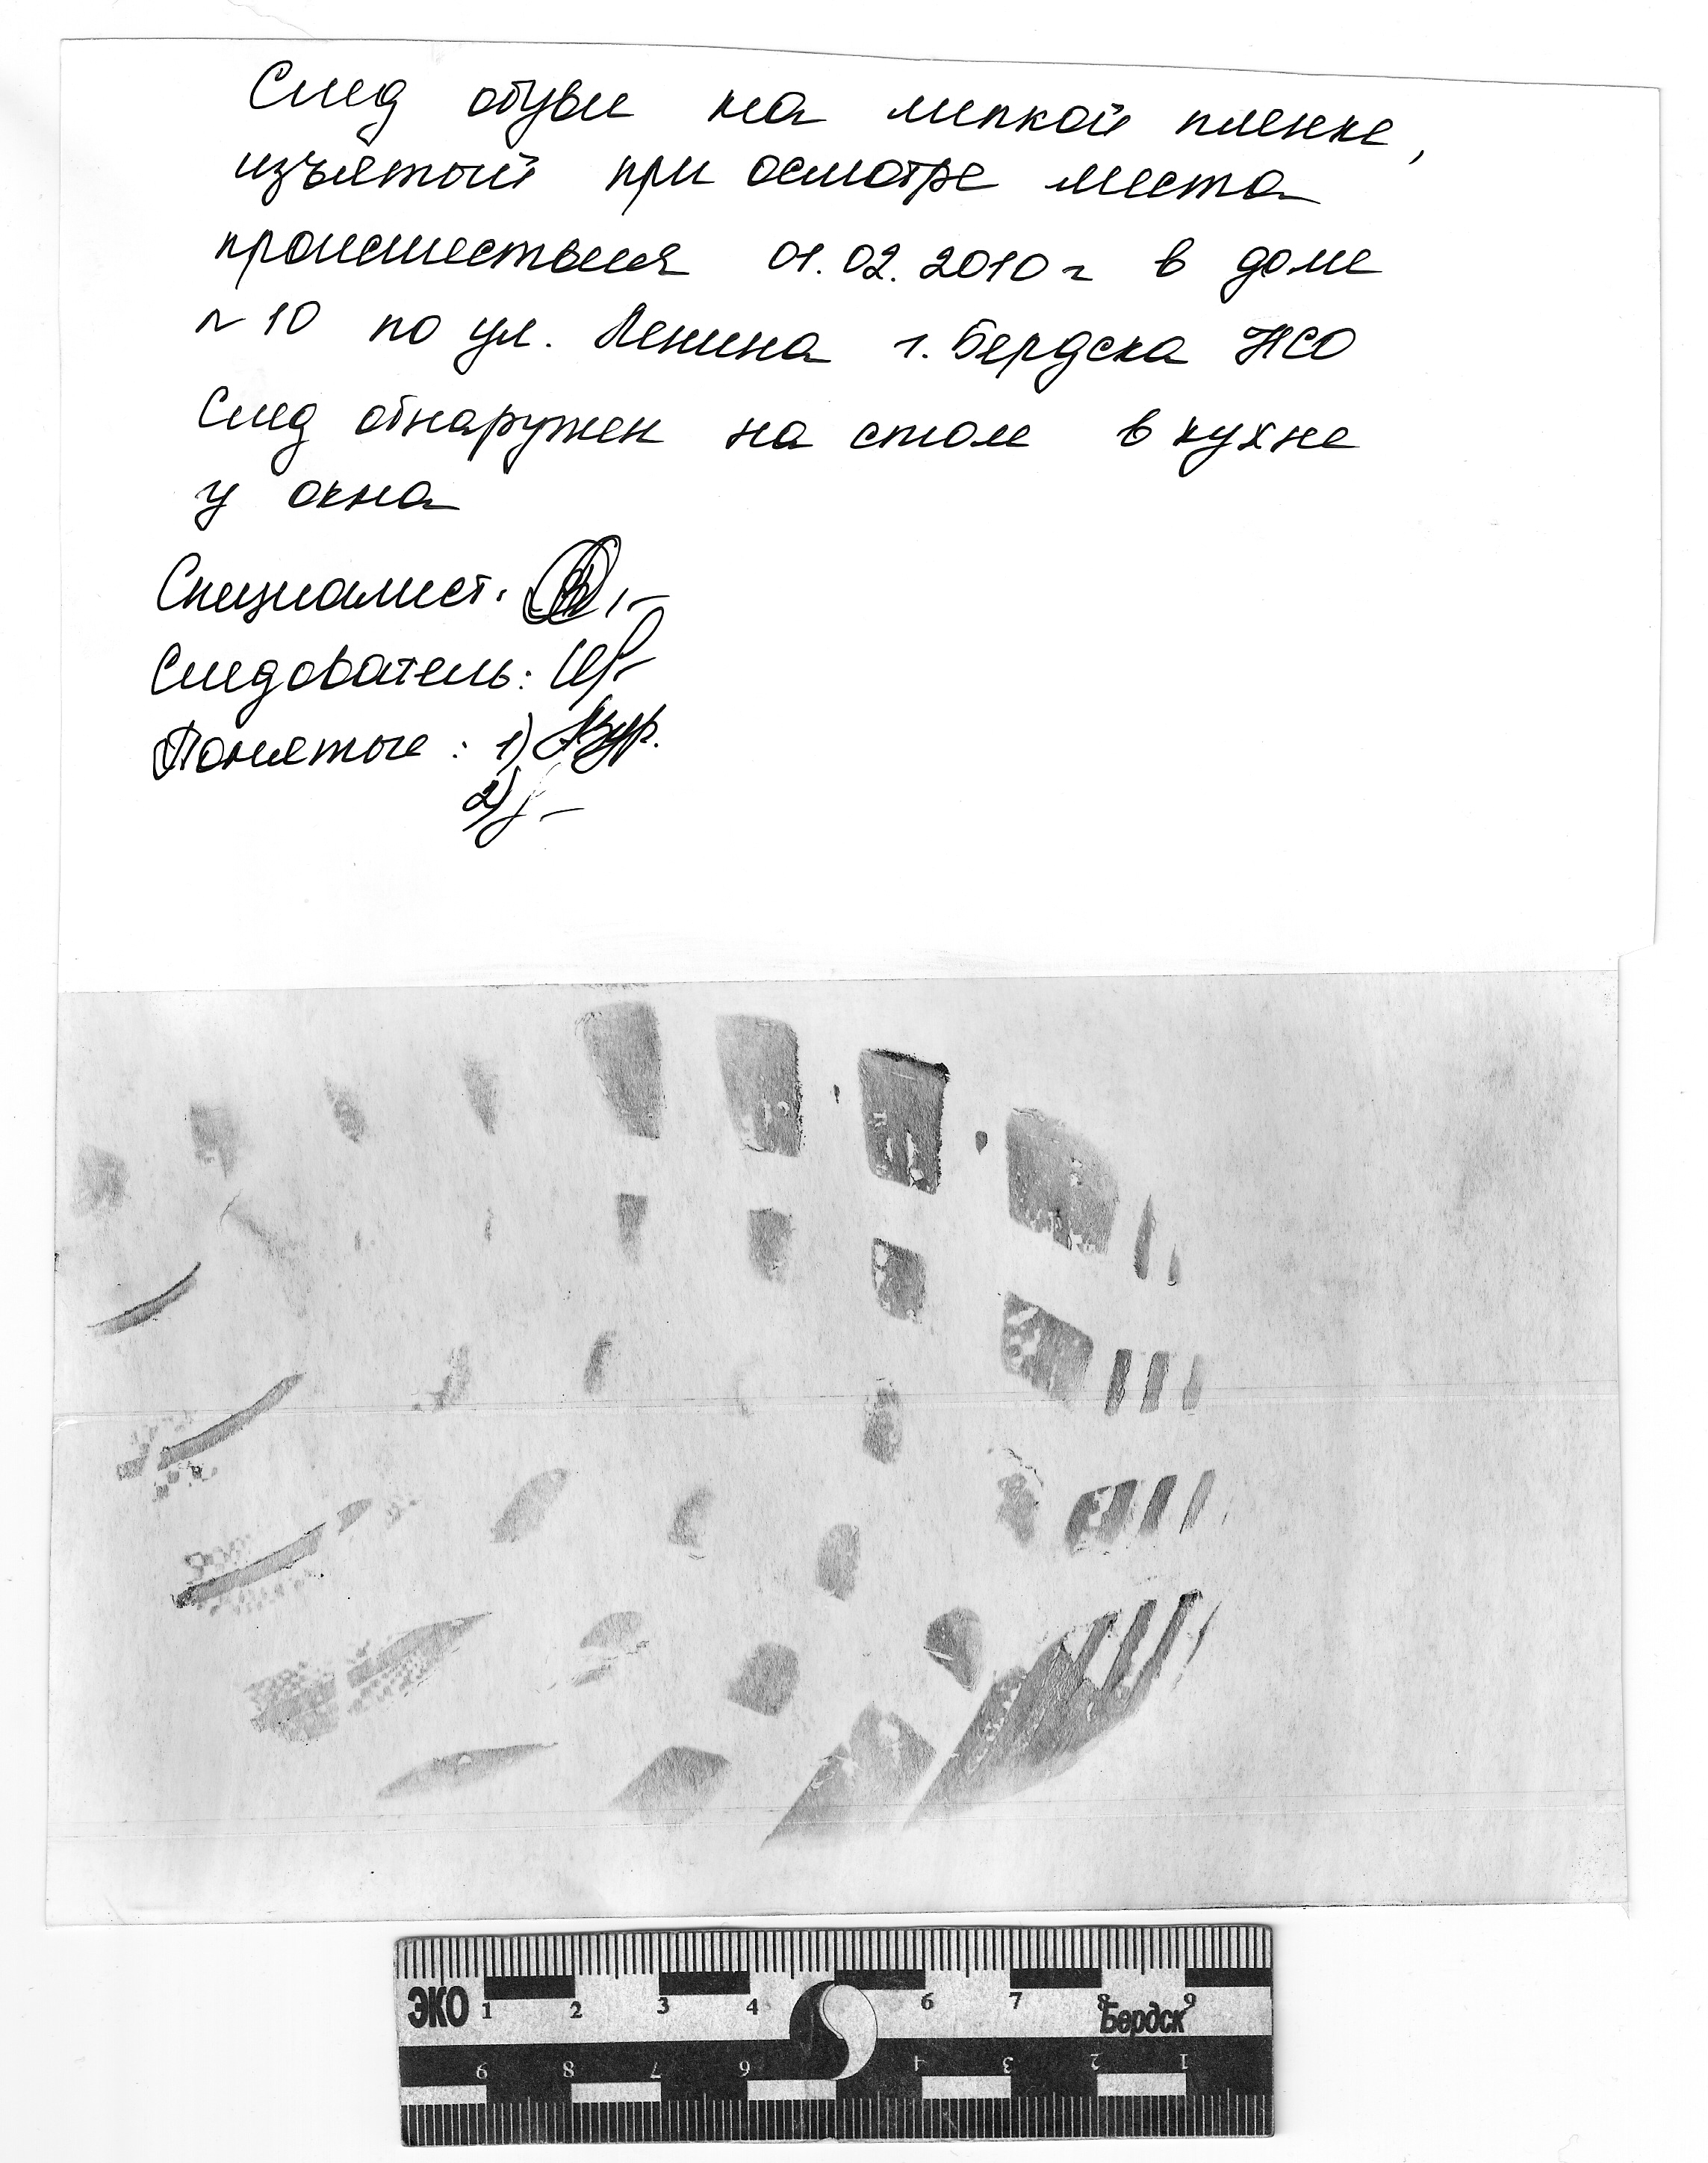 След обуви на липкой пленке,
изъятый при осмотре места
происшествия 01.02.2010 г в доме
№ 10 по ул. Ленина г. Бердска НСО
След обнаружен на столе в кухне
у окна
Специалист:
Следователь:
Понятые: 1)
2)
ЭКО 1 2 3 4 6 7 8 9
Бердск
9 8 7 6 4 3 2 1